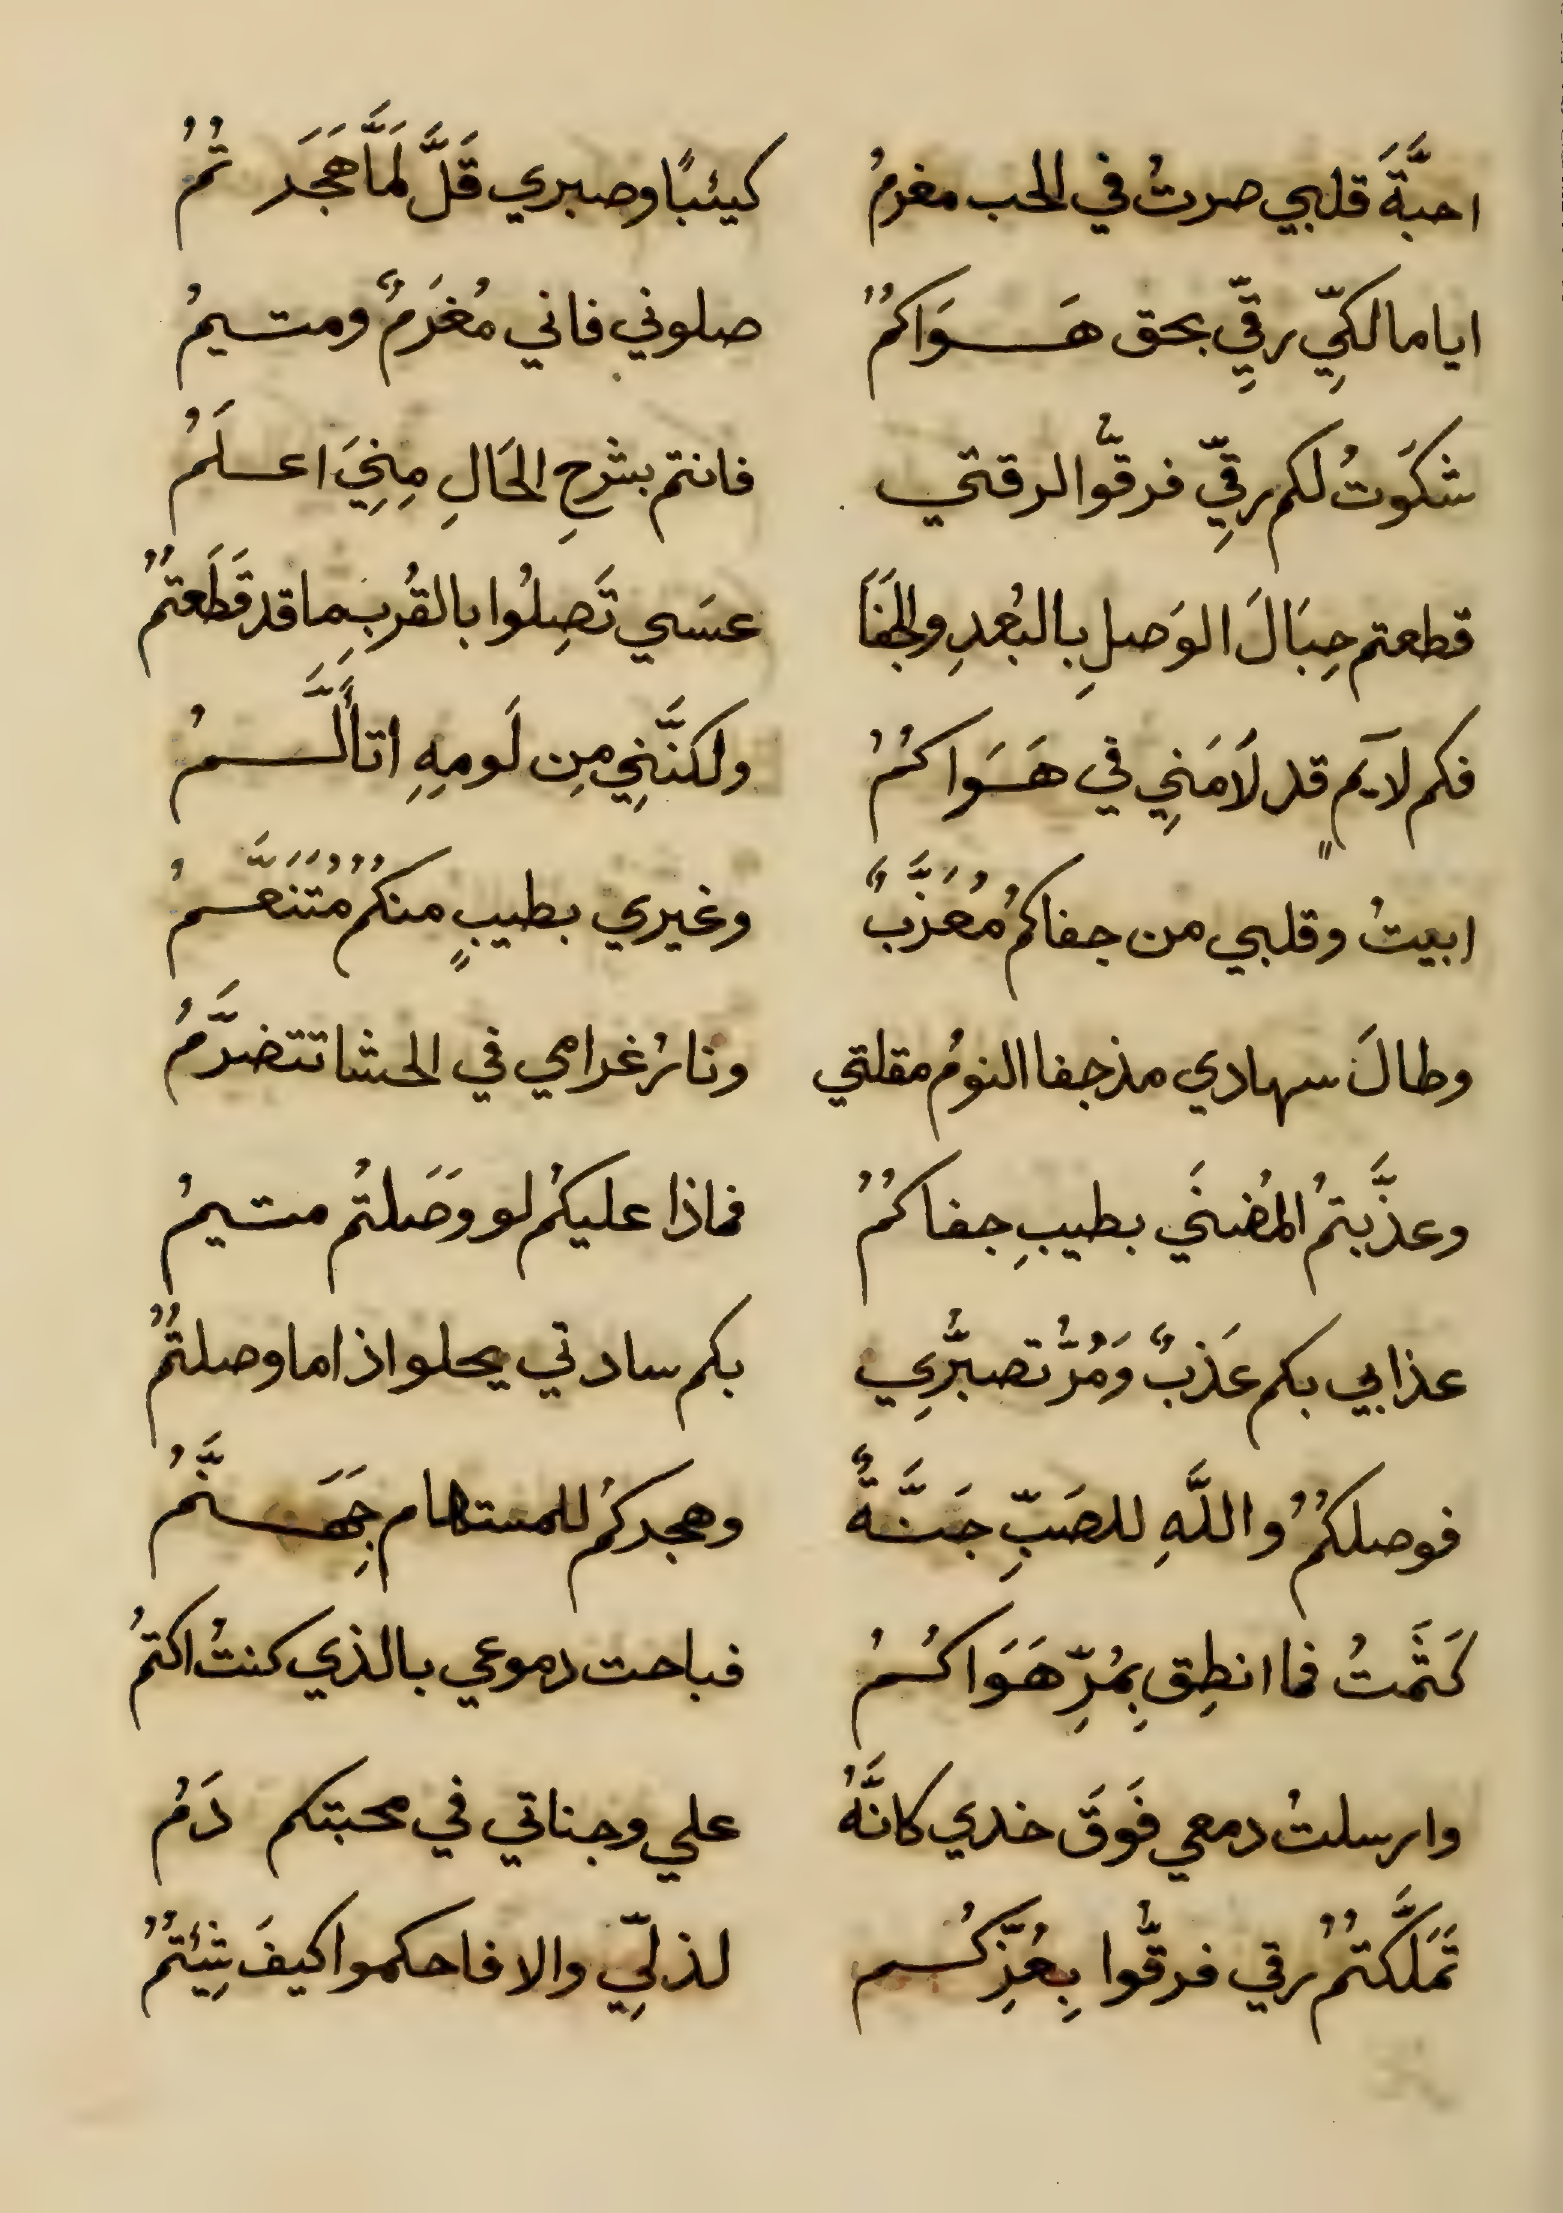 احبَّةَ قلبي صرتُ في الحب مغرمُ كيئبًا وصبري قَلَّ لَمَّا هَجَرَ تُمُ
ايا مالكيِّ رقيِّ بحق هَوَاكمُ صلوني فاني مُغرَمٌ ومتيمُ
شكَوتُ لكم رقيِّ فرقوُّا لرقتي فانتم بشرحِ الحَالِ مِنيَِ اعلَمُ
قطعتم حِبَالَ الوَصلِ بالبُعدِ والجَفَا عسَي تَصِلُوا بالقُربِ ما قد قَطَعتمُ
فكم لآيمٍ قد لَامَنيِ في هَوَاكمُ ولكنَّنيِ مِن لَومِهِ اتأَلَّمُ
ابيتُ وقلبي من جفاكمُ مُعَزَّبٌ وغيري بطيبٍ منكمُ مُتَنَعَّمُ
وطالَ سهادي مذ جفا النومُ مقلتي ونارُ غرامي في الحشا تتضرَّمُ
وعذَّبتمُ المُضنَي بطيبِ جفاكمُ فماذا عليكمُ لو وَصَلتمُ متيمُ
عذابي بكم عَذبٌ وَمُرُّ تصبرُّيِ بكم سادتي يحلوا اذا ما وصلتمُ
فوصلكمُ واللَّهِ للصَبِّ جَنَّةٌ وهجركمُ للمستهام جِهَنَّمُ
كَتَمتُ فما انطِق بِمُرِّ هَوَاكُمُ فباحت دموعي بالذي كنتُ اكتمُ
وارسلتُ دمعي فَوقَ خدي كانَّهُ علي وجناتي في محبتكم دَمُ
تَمَلَّكتمُ رقي فرقوُّا بِعُزِّكُم لذليِّ والا فاحكموا كيفَ شِئتمُ